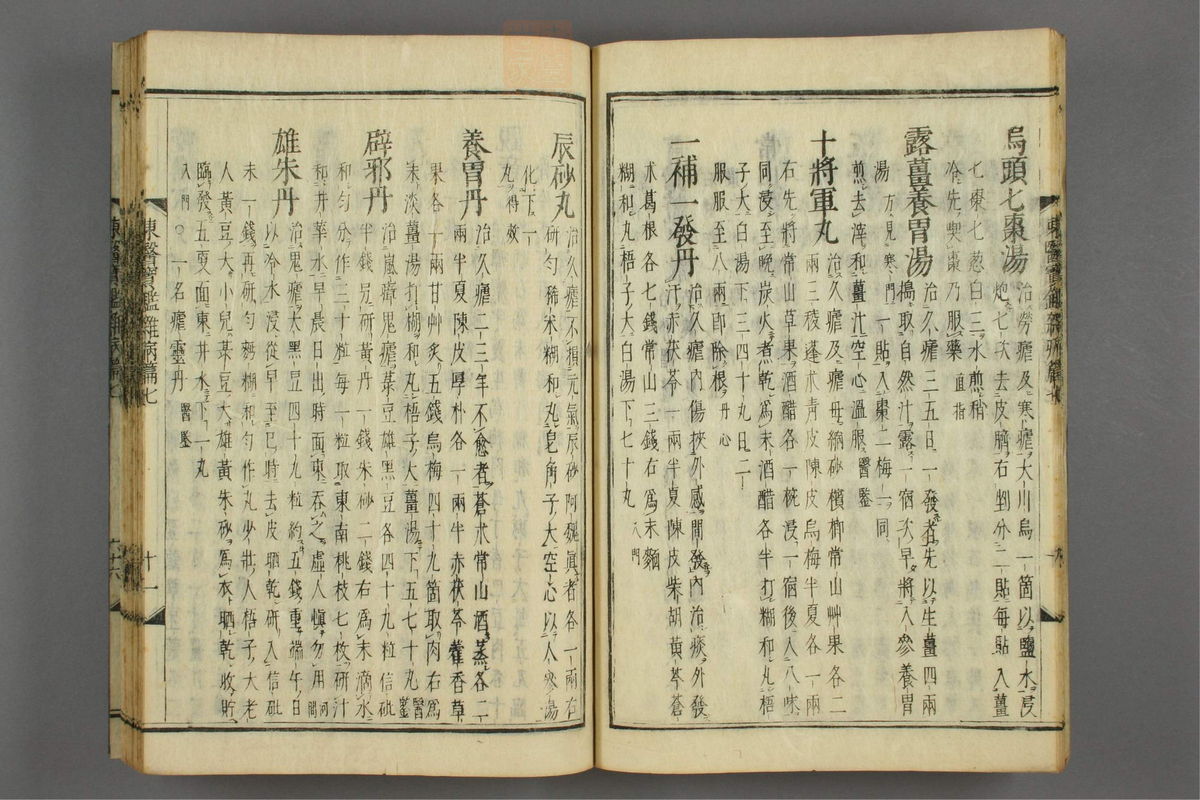 烏頭七棗湯 治勞瘧及寒瘧大川烏一箇以鹽水浸
炮七次去皮臍右剉分二貼每貼入薑
七棗七葱白三水煎稍
冷先喫棗乃服藥 直指
露薑養胃湯 治久瘧三五日一發者先以生薑四兩
搗取自然汁露一宿次早將人參養胃
湯 方見寒門 一貼入棗二梅一同
煎去滓和薑汁空心溫服 醫鑒
十將軍丸 治久瘧及瘧母縮砂檳榔常山艸果各二
兩三稜蓬朮靑皮陳皮烏梅半夏各一兩
右先將常山草果酒醋各一椀浸一宿後入八味
同浸至晚炭火煮乾爲末酒醋各半打糊和丸梧
子大白湯下三四十丸日二
服服至八兩卽除根 丹心
一補一發丹 治久瘧內傷挾外感間發內治痰外發
汗赤茯苓一兩半夏陳皮柴胡黃芩蒼
朮葛根各七錢常山三錢右爲末麵
糊和丸梧子大白湯下七十丸 入門
東醫寶鑑雜病篇七
辰砂丸 治久瘧不損元氣辰砂阿魏眞者各一兩右
硏勻稀米糊和丸皂角子大空心以人參湯
化下一
丸 得效
養胃丹 治久瘧二三年不愈者蒼朮常山酒蒸各二
兩半夏陳皮厚朴各一兩半赤茯苓藿香草
果各一兩甘艸炙五錢烏梅四十九箇取肉右爲
末淡薑湯打糊和丸梧子大薑湯下五七十丸 醫鑒
辟邪丹 治嵐瘴鬼瘧菉豆雄黑豆各四十九粒信砒
半錢另硏黃丹一錢朱砂二錢右爲末滴水
和勻分作三十粒每一粒取東南桃枝七枚硏汁
和井華水早晨日出時面東呑之虛人愼勿用 河間
雄朱丹 治鬼瘧大黑豆四十九粒約五錢重端午日
以冷水浸從早至巳時去皮晒乾硏入信砒
末一錢再硏勻麪糊和勻作丸少壯人梧子大老
人黃豆大小兒菉豆大雄黃朱砂爲衣晒乾收貯
臨發五更面東井水下一丸
入門 ○一名瘧靈丹 醫鑒
東醫寶鑑雜病篇七
十一